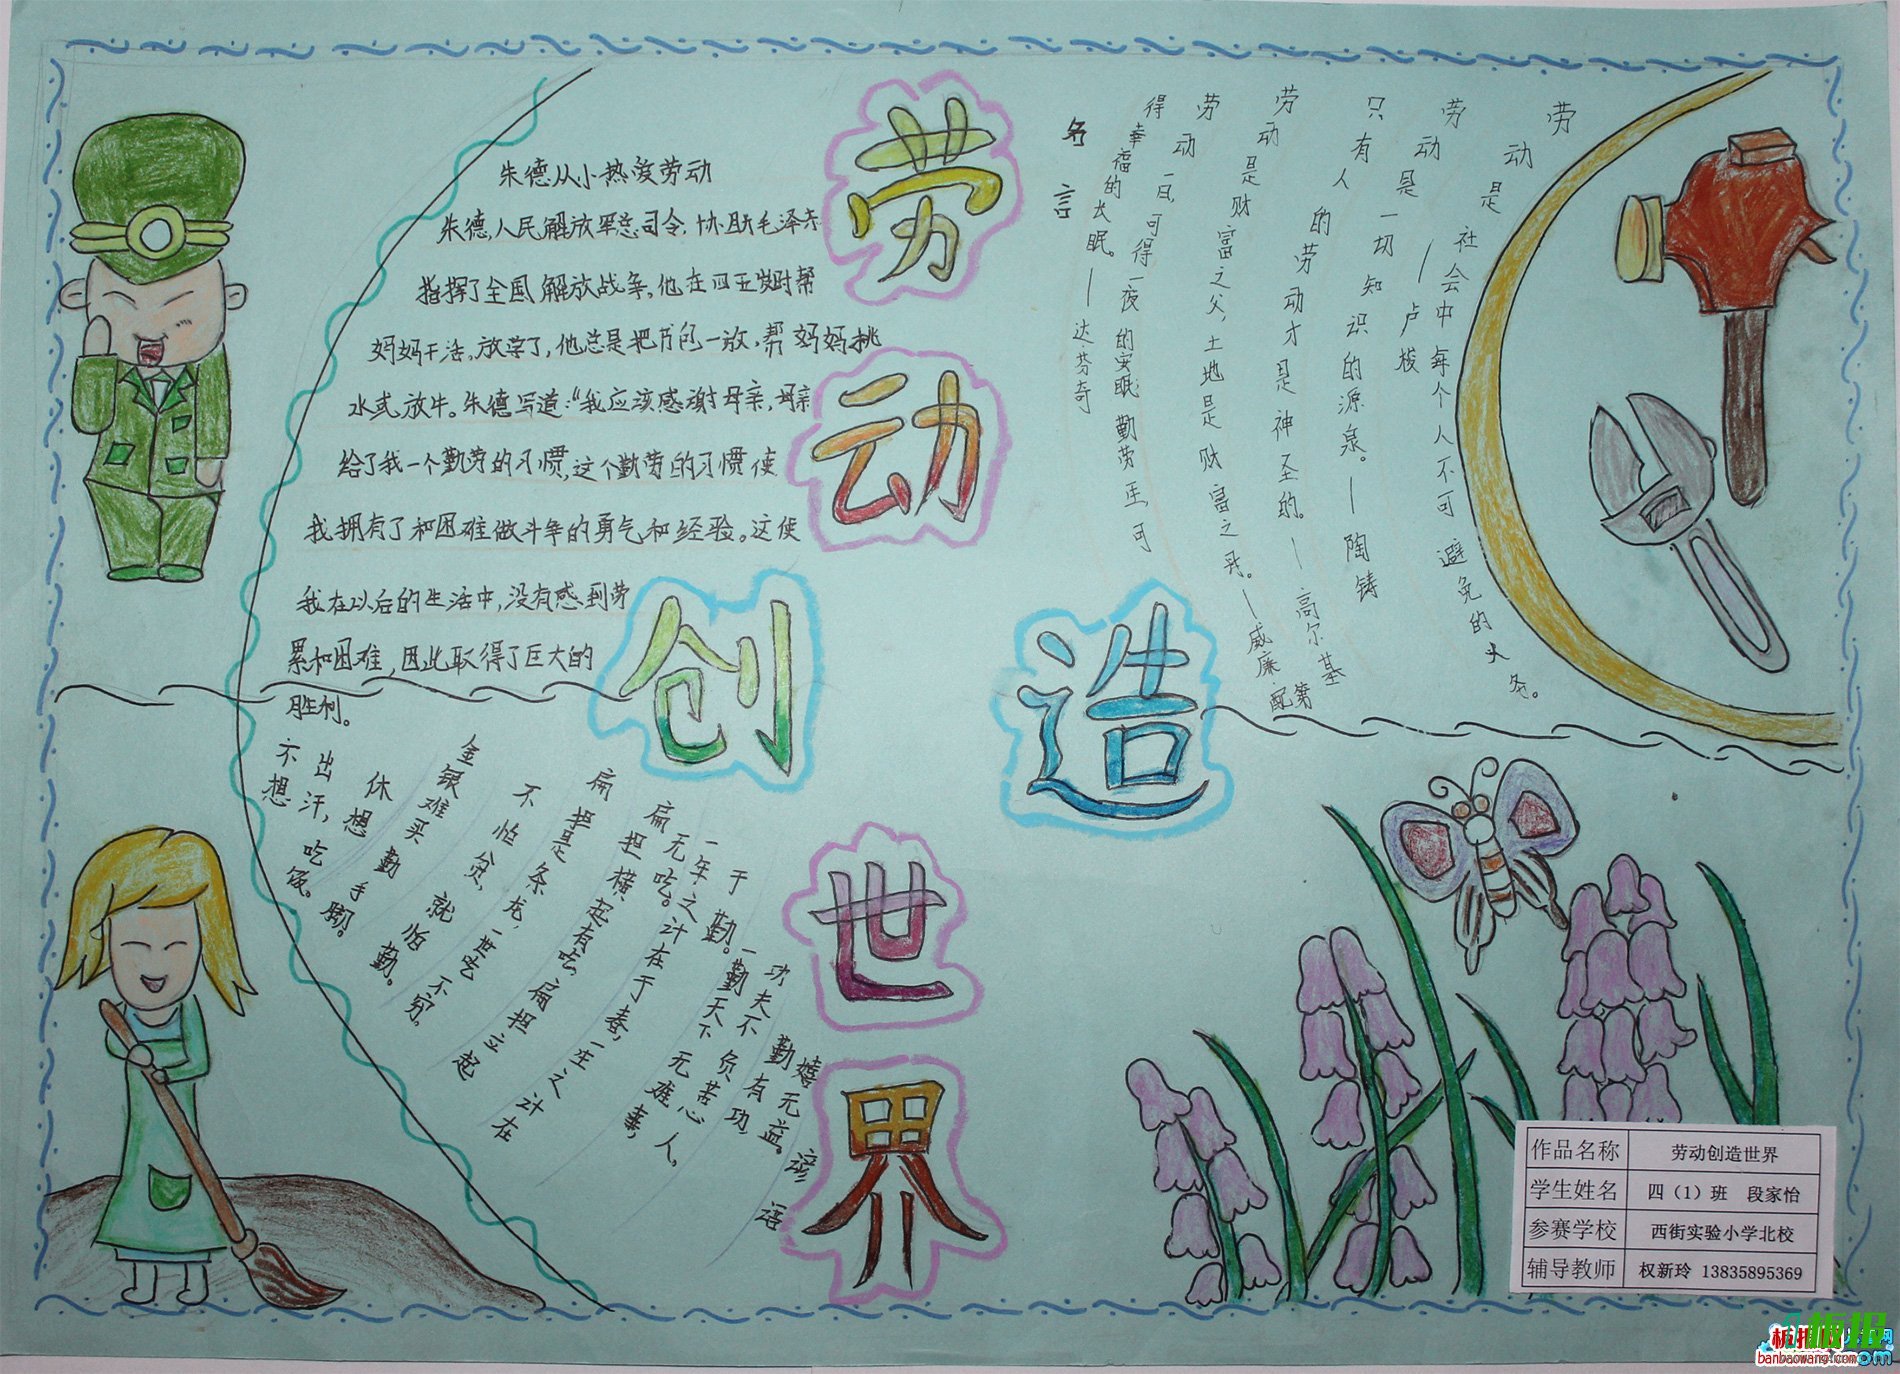 劳动
创造
世界
朱德从小热爱劳动
朱德,人民解放军总司令,协助毛泽东
指挥了全国解放战争,他在四五岁时帮
妈妈干活,放学了,他总是把书包一放,帮妈妈挑
水或放牛。朱德写道:“我应该感谢母亲,母亲
给了我一个勤劳的习惯,这个勤劳的习惯使
我拥有了和困难做斗争的勇气和经验。这使
我在以后的生活中,没有感到劳
累和困难,因此取得了巨大的
胜利。
名言
得幸福的长眠。—达芬奇
劳动一日,可得一夜的安眠 勤劳一生,可
劳动是财富之父,土地是财富之母。—威廉·配第
只有人的劳动才是神圣的。—高尔基
劳动是一切知识的源泉。—陶铸
劳动是社会中每个人不可避免的义务。
—卢梭
谚语
嬉无益。
勤有功,
功夫不负苦心人,
一勤天下无难事,
于勤。
一年之计在于春,一生之计在
扁担横起有吃,扁担立起
无吃。
扁担是条龙,一世吃不穷,
不怕贫,就怕不勤。
金银难买勤手脚。
休想
出汗,吃饭。
不想
作品名称 劳动创造世界
学生姓名 四(1)班 段家怡
参赛学校 西街实验小学北校
辅导教师 权新玲 13835895369
板报网
banbaowang.com